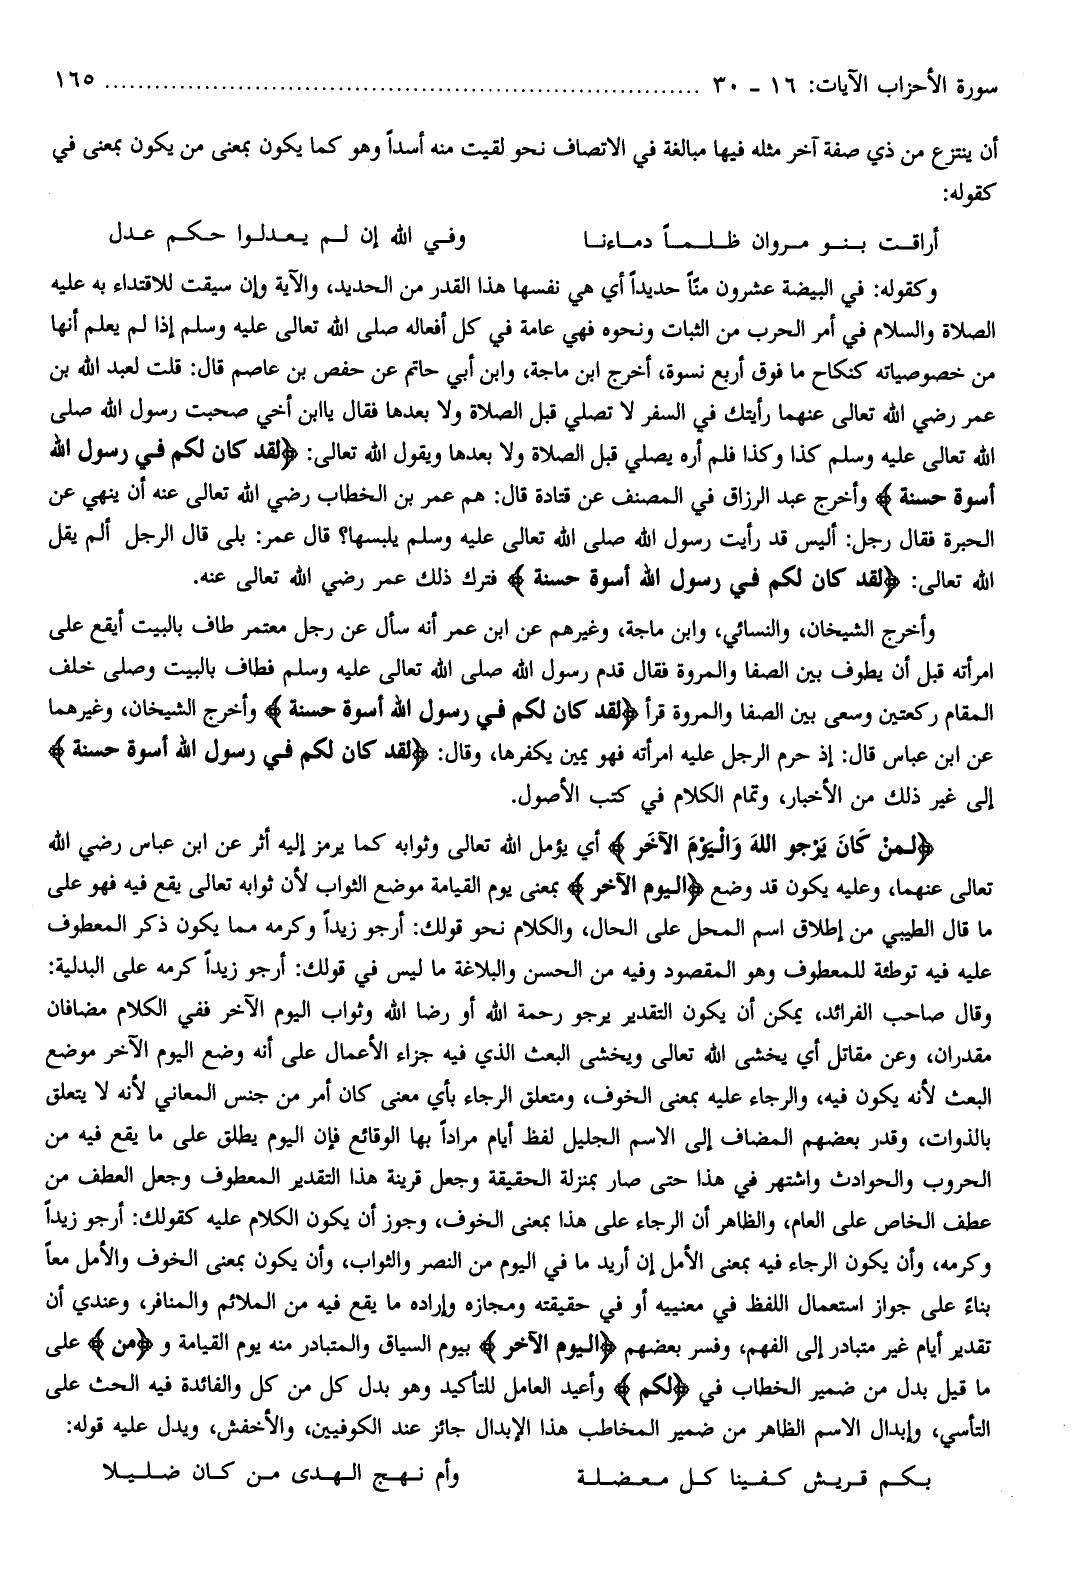 سورة الأحزاب الآيات: ١٦ - ٣٠ ........................................................................ ١٦٥
أن ينتزع من ذي صفة آخر مثله فيها مبالغة في الاتصاف نحو لقيت منه أسداً وهو كما يكون بمعنى من يكون بمعنى في
كقوله:
أراقت بنو مروان ظلماً دماءنا وفي الله إن لم يعدلوا حكم عدل
وكقوله: في البيضة عشرون منّاً حديداً أي هي نفسها هذا القدر من الحديد، والآية وإن سيقت للاقتداء به عليه
الصلاة والسلام في أمر الحرب من الثبات ونحوه فهي عامة في كل أفعاله صلى الله تعالى عليه وسلم إذا لم يعلم أنها
من خصوصياته كنكاح ما فوق أربع نسوة، أخرج ابن ماجة، وابن أبي حاتم عن حفص بن عاصم قال: قلت لعبد الله بن
عمر رضي الله تعالى عنهما رأيتك في السفر لا تصلي قبل الصلاة ولا بعدها فقال ياابن أخي صحبت رسول الله صلى
الله تعالى عليه وسلم كذا وكذا فلم أره يصلي قبل الصلاة ولا بعدها ويقول الله تعالى: ﴿لقد كان لكم في رسول الله
أسوة حسنة﴾ وأخرج عبد الرزاق في المصنف عن قتادة قال: هم عمر بن الخطاب رضي الله تعالى عنه أن ينهي عن
الحبرة فقال رجل: أليس قد رأيت رسول الله صلى الله تعالى عليه وسلم يلبسها؟ قال عمر: بلى قال الرجل ألم يقل
الله تعالى: ﴿لقد كان لكم في رسول الله أسوة حسنة﴾ فترك ذلك عمر رضي الله تعالى عنه.
وأخرج الشيخان، والنسائي، وابن ماجة، وغيرهم عن ابن عمر أنه سأل عن رجل معتمر طاف بالبيت أيقع على
امرأته قبل أن يطوف بين الصفا والمروة فقال قدم رسول الله صلى الله تعالى عليه وسلم فطاف بالبيت وصلى خلف
المقام ركعتين وسعى بين الصفا والمروة قرأ ﴿لقد كان لكم في رسول الله أسوة حسنة﴾ وأخرج الشيخان، وغيرهما
عن ابن عباس قال: إذ حرم الرجل عليه امرأته فهو يمين يكفرها، وقال: ﴿لقد كان لكم في رسول الله أسوة حسنة﴾
إلى غير ذلك من الأخبار، وتمام الكلام في كتب الأصول.
﴿لمنْ كَانَ يَرْجو اللهَ وَالْيَوْمَ الآخَر﴾ أي يؤمل الله تعالى وثوابه كما يرمز إليه أثر عن ابن عباس رضي الله
تعالى عنهما، وعليه يكون قد وضع ﴿اليوم الآخر﴾ بمعنى يوم القيامة موضع الثواب لأن ثوابه تعالى يقع فيه فهو على
ما قال الطيبي من إطلاق اسم المحل على الحال، والكلام نحو قولك: أرجو زيداً وكرمه مما يكون ذكر المعطوف
عليه فيه توطئة للمعطوف وهو المقصود وفيه من الحسن والبلاغة ما ليس في قولك: أرجو زيداً كرمه على البدلية:
وقال صاحب الفرائد، يمكن أن يكون التقدير يرجو رحمة الله أو رضا الله وثواب اليوم الآخر ففي الكلام مضافان
مقدران، وعن مقاتل أي يخشى الله تعالى ويخشى البعث الذي فيه جزاء الأعمال على أنه وضع اليوم الآخر موضع
البعث لأنه يكون فيه، والرجاء عليه بمعنى الخوف، ومتعلق الرجاء بأي معنى كان أمر من جنس المعاني لأنه لا يتعلق
بالذوات، وقدر بعضهم المضاف إلى الاسم الجليل لفظ أيام مراداً بها الوقائع فإن اليوم يطلق على ما يقع فيه من
الحروب والحوادث واشتهر في هذا حتى صار بمنزلة الحقيقة وجعل قرينة هذا التقدير المعطوف وجعل العطف من
عطف الخاص على العام، والظاهر أن الرجاء على هذا بمعنى الخوف، وجوز أن يكون الكلام عليه كقولك: أرجو زيداً
وكرمه، وأن يكون الرجاء فيه بمعنى الأمل إن أريد ما في اليوم من النصر والثواب، وأن يكون بمعنى الخوف والأمل معاً
بناءً على جواز استعمال اللفظ في معنييه أو في حقيقته ومجازه وإراده ما يقع فيه من الملائم والمنافر، وعندي أن
تقدير أيام غير متبادر إلى الفهم، وفسر بعضهم ﴿اليوم الآخر﴾ بيوم السياق والمتبادر منه يوم القيامة و ﴿من﴾ على
ما قيل بدل من ضمير الخطاب في ﴿لكم﴾ وأعيد العامل للتأكيد وهو بدل كل من كل والفائدة فيه الحث على
التأسي، وإبدال الاسم الظاهر من ضمير المخاطب هذا الإبدال جائز عند الكوفيين، والأخفش، ويدل عليه قوله:
بكم قريش كفينا كل معضلة وأم نهج الهدى من كان ضليلا